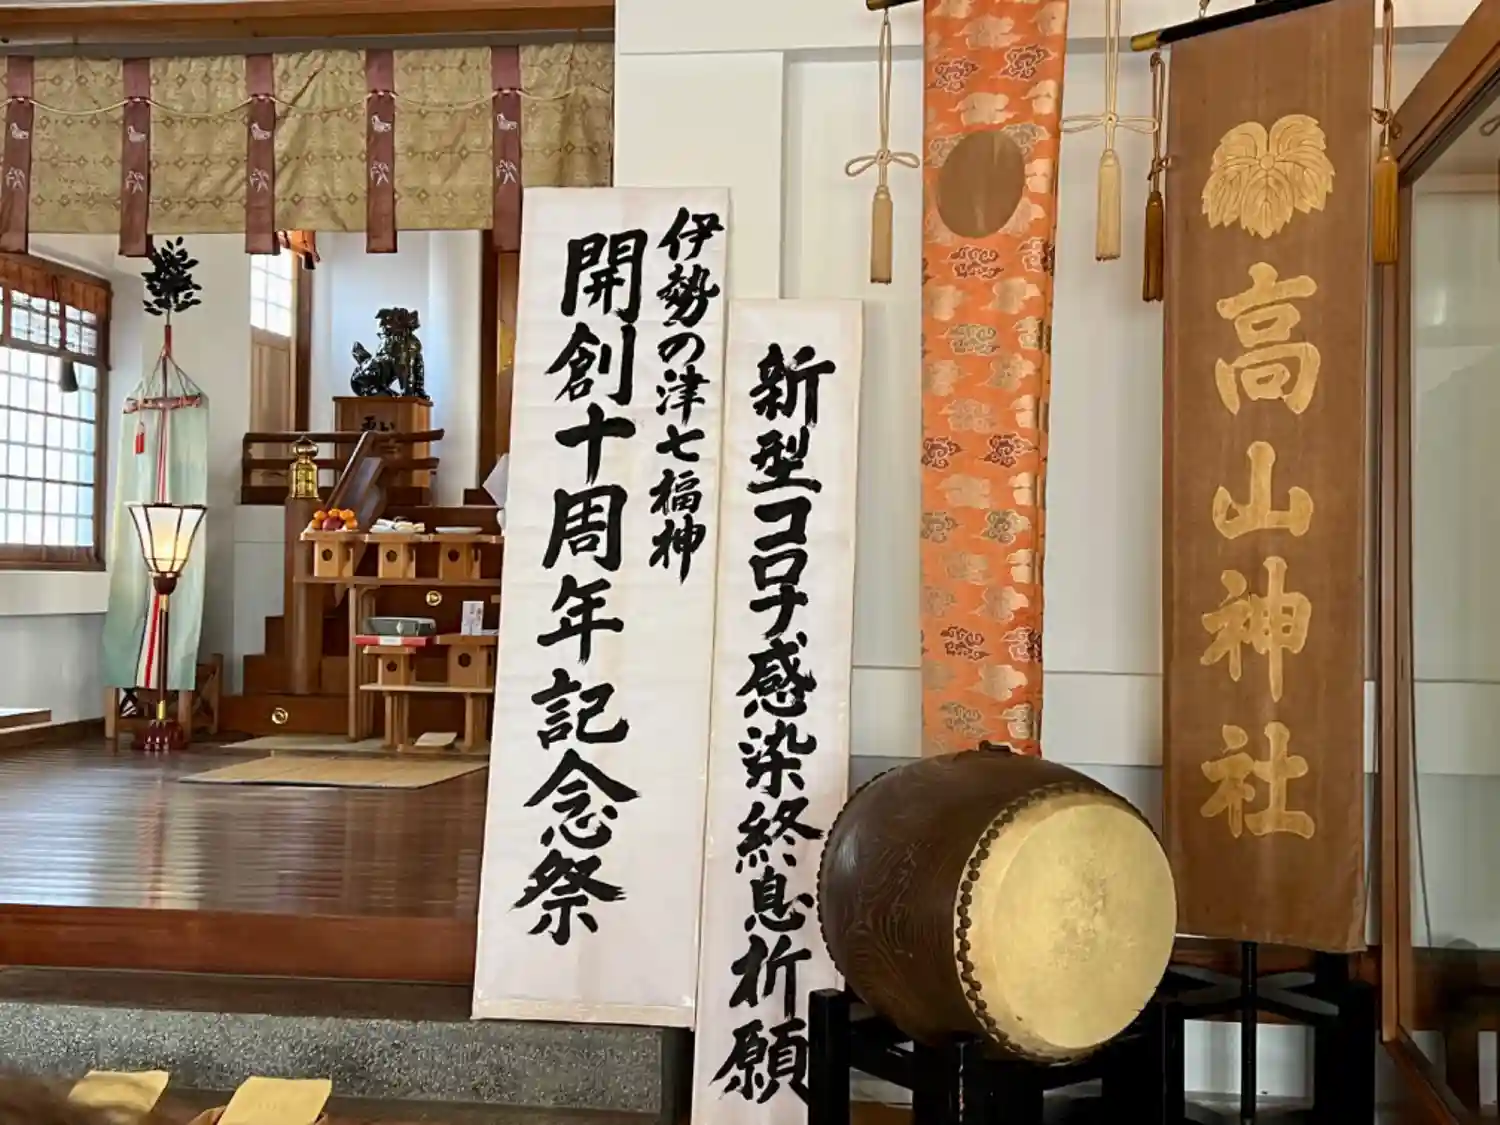 高山神社
新型コロナ感染終息祈願
伊勢の津七福神
開創十周年記念祭